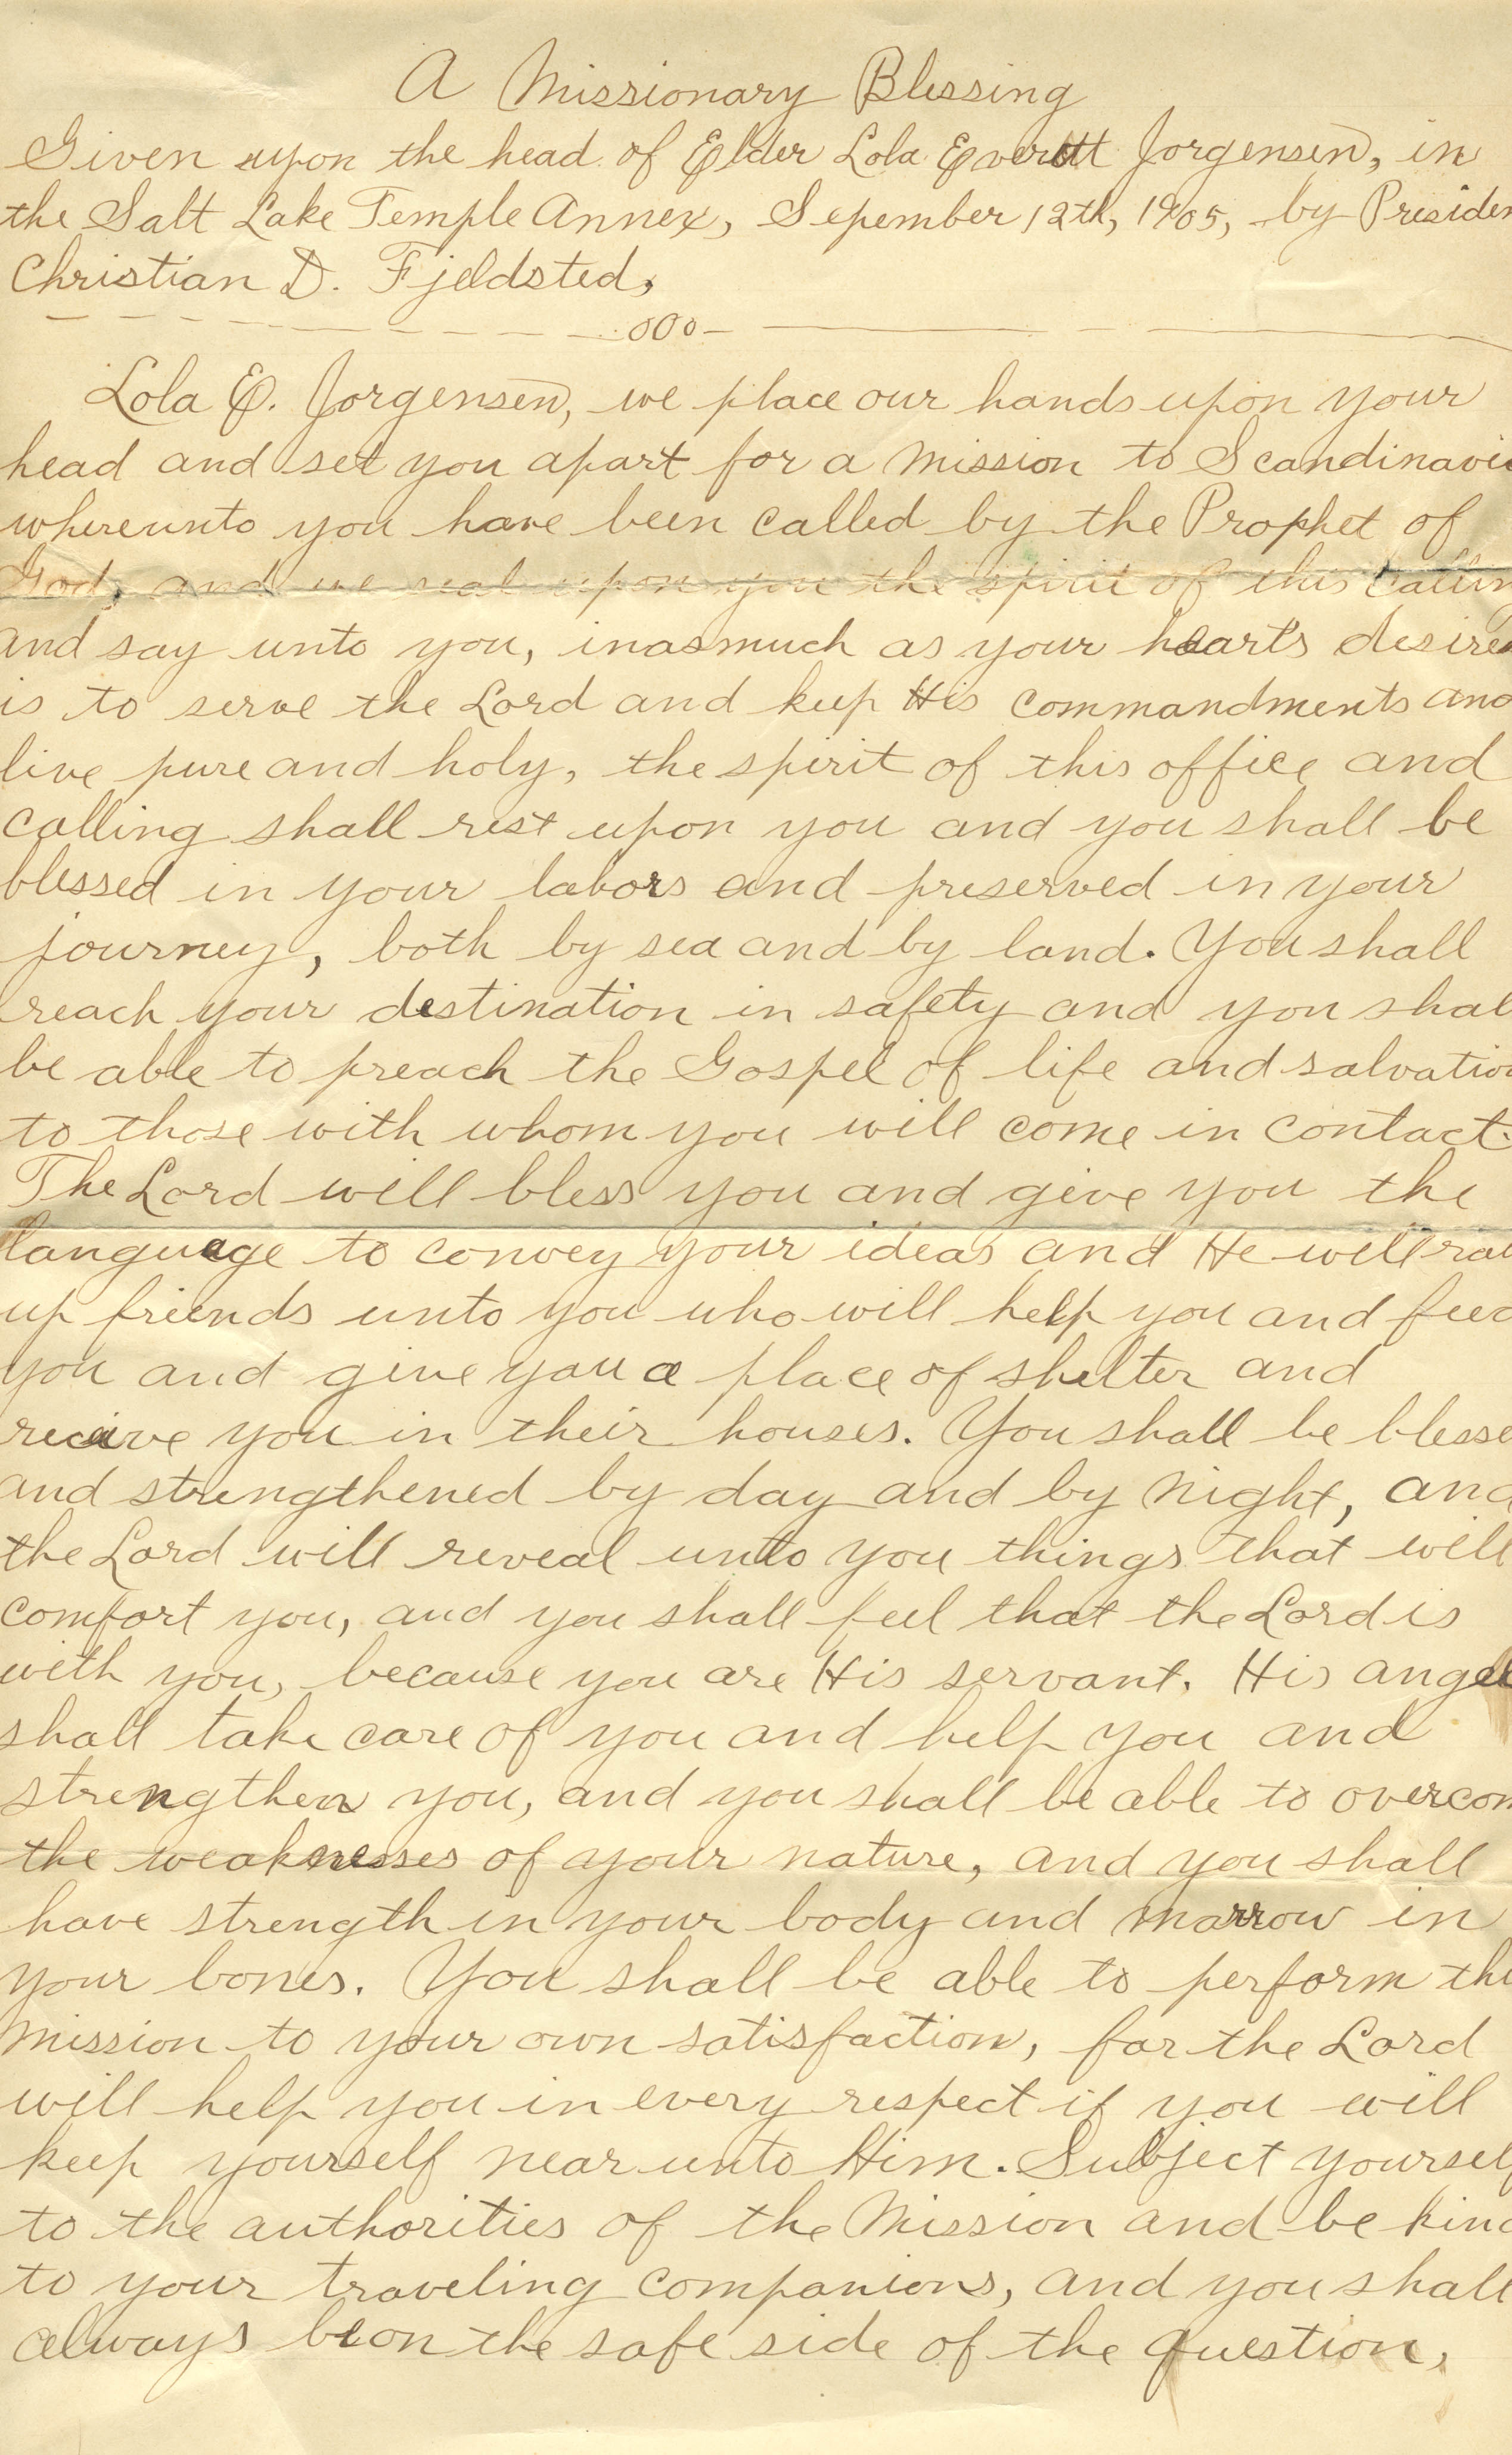 A Missionary Blessing
Given upon the head of Elder Lola Everett Jorgensen, in
the Salt Lake Temple Annex, Sepember 12th, 1905, by Presiden
Christian D. Fjeldsted,
oOo
Lola E. Jorgensen, we place our hands upon your
head and set you apart for a mission to Scandinavia
whereunto you have been called by the Prophet of
God, and we seal upon you the spirit of this callin
and say unto you, inasmuch as your hearts desire
is to serve the Lord and keep His commandments and
live pure and holy, the spirit of this office and
calling shall rest upon you and you shall be
blessed in your labors and preserved in your
journey, both by sea and by land. You shall
reach your destination in safety and you shal
be able to preach the Gospel of life and salvatio
to those with whom you will come in contact.
The Lord will bless you and give you the
language to convey your ideas and He will rai
up friends unto you who will help you and feed
you and give you a place of shelter and
receive you in their houses. You shall be blesse
and strengthened by day and by night, and
the Lord will reveal unto you things that will
comfort you, and you shall feel that the Lord is
with you, because you are His servant. His angel
shall take care of you and help you and
strengthen you, and you shall be able to overcom
the weaknesses of your nature, and you shall
have strength in your body and marrow in
your bones. You shall be able to perform thi
mission to your own satisfaction, for the Lord
will help you in every respect if you will
keep yourself near unto Him. Subject yoursel
to the authorities of the Mission and be kind
to your traveling companions, and you shall
always be on the safe side of the question,